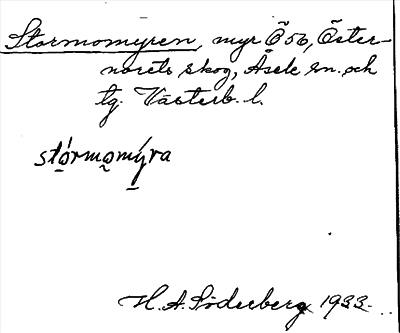 Stormomyren, myr Ö56, Öster-
norets skog, Åsele sn. och
tg. Västerb. l.
stórmomýra
H. A. Söderberg 1933.